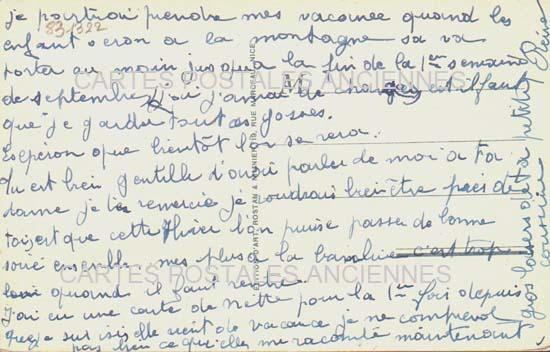 je pourrai prendre mes vacance quand les
enfant seron a la montagne sa va
porter au moin jusqu'a la fin de la 1er semaine
de septembre d'ici j'aurai de et il faut
que je garde tout les gosses.
Espéron que bientôt l'on se vera.
Tu est bien gentille d'avoir parler de moi a ta
dame je l'en remercie je voudrais bien être près de
toi et que cette Hiver l'on puisse passer de bonne
soiré ensemble mes plus a la c'est trop
quand il faut rentré
J'ai eu une carte de Nette pour la 1er fois depuis
que je suis isi elle ecrit de vacance je ne comprend
pas bien ce qu'elle me raconte maintenant
gros baisers de ta petite
cousine Reine
83-1322
CARTES POSTALES ANCIENNES
CARTES POSTALES ANCIENNES
EDITIONS D'ART, ROSTAN & MUNIER, 10, RUE MARCEAU, NICE